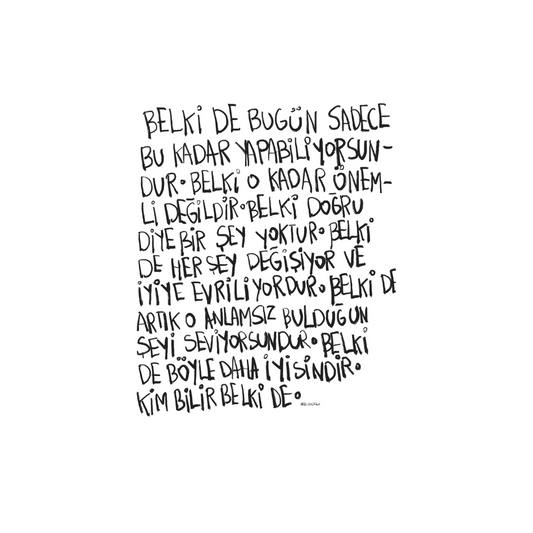 BELKİ DE BUGÜN SADECE
BU KADAR YAPABİLİYORSUN-
DUR. BELKİ O KADAR ÖNEM-
Lİ DEĞİLDİR. BELKİ DOĞRU
DİYE BİR ŞEY YOKTUR. BELKİ
DE HER ŞEY DEĞİŞİYOR VE
İYİYE EVRİLİYORDUR. BELKİ DE
ARTIK O ANLAMSIZ BULDUĞUN
ŞEYİ SEVİYORSUNDUR. BELKİ
DE BÖYLE DAHA İYİSİNDİR.
KİM BİLİR BELKİ DE.